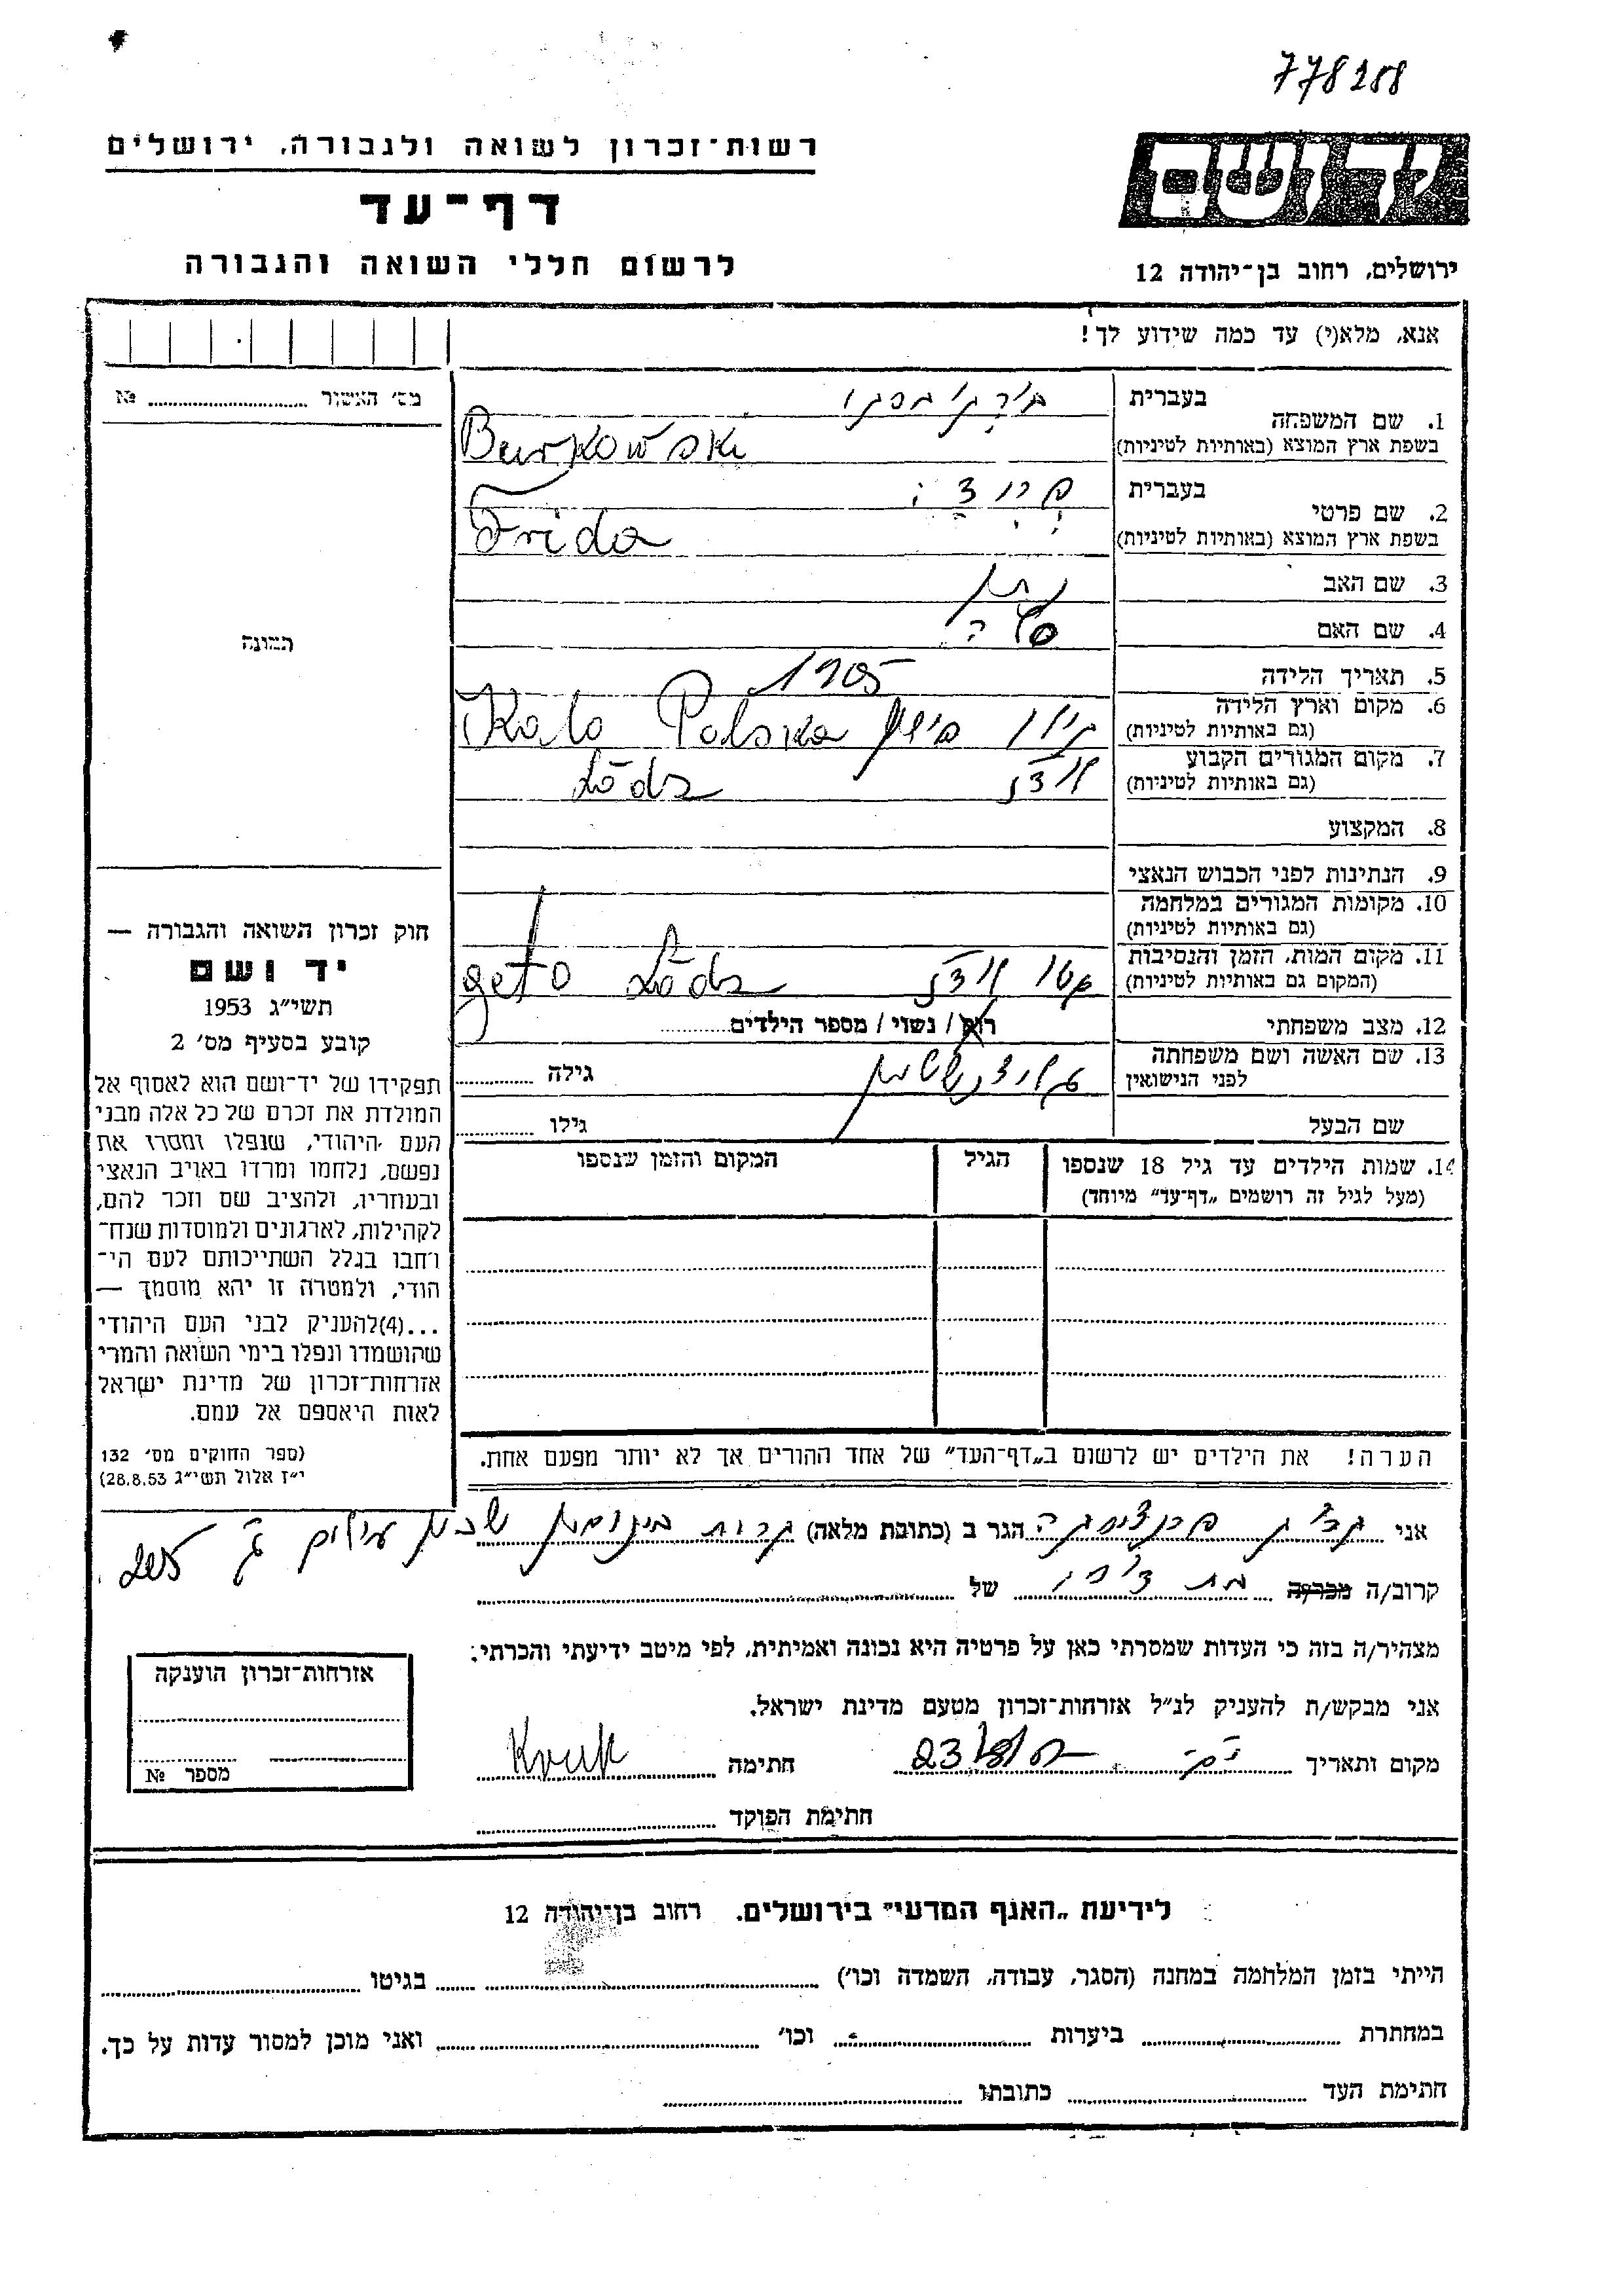 778208
רשות־זכרון לשואה ולגבורה, ירושלים
דף־עד
לרשום חללי השואה והגבורה
יד ושם
ירושלים, רחוב בן־יהודה 12
אנא, מלא(י) עד כמה שידוע לך!
מס׳ האשור № 
1. שם המשפחה
בעברית
בשפת ארץ המוצא (באותיות לטיניות)
Burkowski
2. שם פרטי
בעברית
בשפת ארץ המוצא (באותיות לטיניות)
Frida
3. שם האב
4. שם האם
5. תאריך הלידה 1905
6. מקום וארץ הלידה
(גם באותיות לטיניות)
פולין Polska
7. מקום המגורים הקבוע
(גם באותיות לטיניות)
לודז Lódz
8. המקצוע
9. הנתינות לפני הכבוש הנאצי
10. מקומות המגורים במלחמה
(גם באותיות לטיניות)
11. מקום המות, הזמן והנסיבות
(המקום גם באותיות לטיניות)
גטו לודז Lódz geto
12. מצב משפחתי רוק / נשוי / מספר הילדים
13. שם האשה ושם משפחתה
לפני הנישואין
גילה
שם הבעל גילו
14. שמות הילדים עד גיל 18 שנספו
(מעל לגיל זה רושמים „דף־עד״ מיוחד)
הגיל
המקום והזמן שנספו
הערה! את הילדים יש לרשום ב„דף־העד״ של אחד ההורים אך לא יותר מפעם אחת.
תמונה
חוק זכרון השואה והגבורה —
יד ושם
תשי״ג 1953
קובע בסעיף מס׳ 2
תפקידו של יד־ושם הוא לאסוף אל
המולדת את זכרם של כל אלה מבני
העם היהודי, שנפלו ומסרו את
נפשם, נלחמו ומרדו באויב הנאצי
ובעוזריו, ולהציב שם וזכר להם,
לקהילות, לארגונים ולמוסדות שנח־
רחבו בגלל השתייכותם לעם הי־
הודי, ולמטרה זו יהא מוסמך —
...(4)להעניק לבני העם היהודי
שהושמדו ונפלו בימי השואה והמרי
אזרחות־זכרון של מדינת ישראל
לאות היאספם אל עמם.
(ספר החוקים מס׳ 132
י״ז אלול תשי״ג 28.8.53)
אני הגר ב (כתובת מלאה)
קרוב/ה מכר/ה של
מצהיר/ה בזה כי העדות שמסרתי כאן על פרטיה היא נכונה ואמיתית, לפי מיטב ידיעתי והכרתי.
אני מבקש/ת להעניק לנ״ל אזרחות־זכרון מטעם מדינת ישראל.
מקום ותאריך חתימה Kruk
חתימת הפוקד
אזרחות־זכרון הוענקה
מספר №
לידיעת „האגף המדעי״ בירושלים, רחוב בן־יהודה 12
הייתי בזמן המלחמה במחנה (הסגר, עבודה, השמדה וכו׳) בגיטו
במחתרת ביערות וכו׳ ואני מוכן למסור עדות על כך.
חתימת העד כתובתו